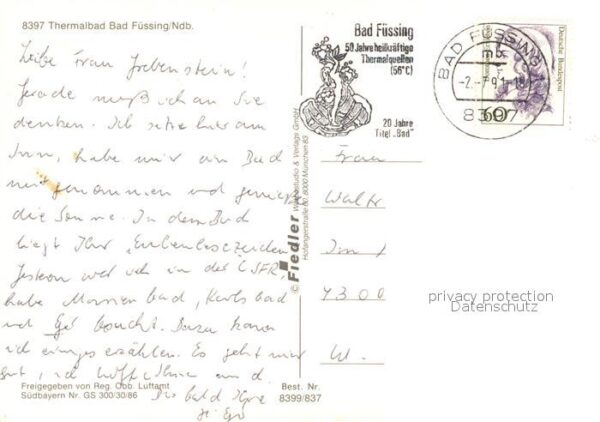 8397 Thermalbad Bad Füssing/Ndb.
Bad Füssing
50 Jahre heilkräftige
Thermalquellen
(56°C)
20 Jahre
Titel „Bad"
BAD FÜSSING
mb
-2.-7.91-18
8397
60
Deutsche Bundespost
Liebe Frau
Gerade muß ich an Sie
denken. Ich sitze hier am
Inn, habe mir ein Bad
mit genommen und genieße
die Sonne. In dem Bad
liegt Ihr
Gestern war ich in der CSFR,
habe Marienbad, Karlsbad
und besucht. Dazu kann
ich einiges erzählen. Es geht mir
gut, ich hoffe Ihnen
Bis bald Ihre
© Fiedler Werbestudio & Verlags GmbH
Hofangerstraße 80, 8000 München 83
Frau
Walter
4300
W.
privacy protection
Datenschutz
Freigegeben von Reg. Obb. Luftamt
Südbayern Nr. GS 300/30/86
Best. Nr.
8399/837